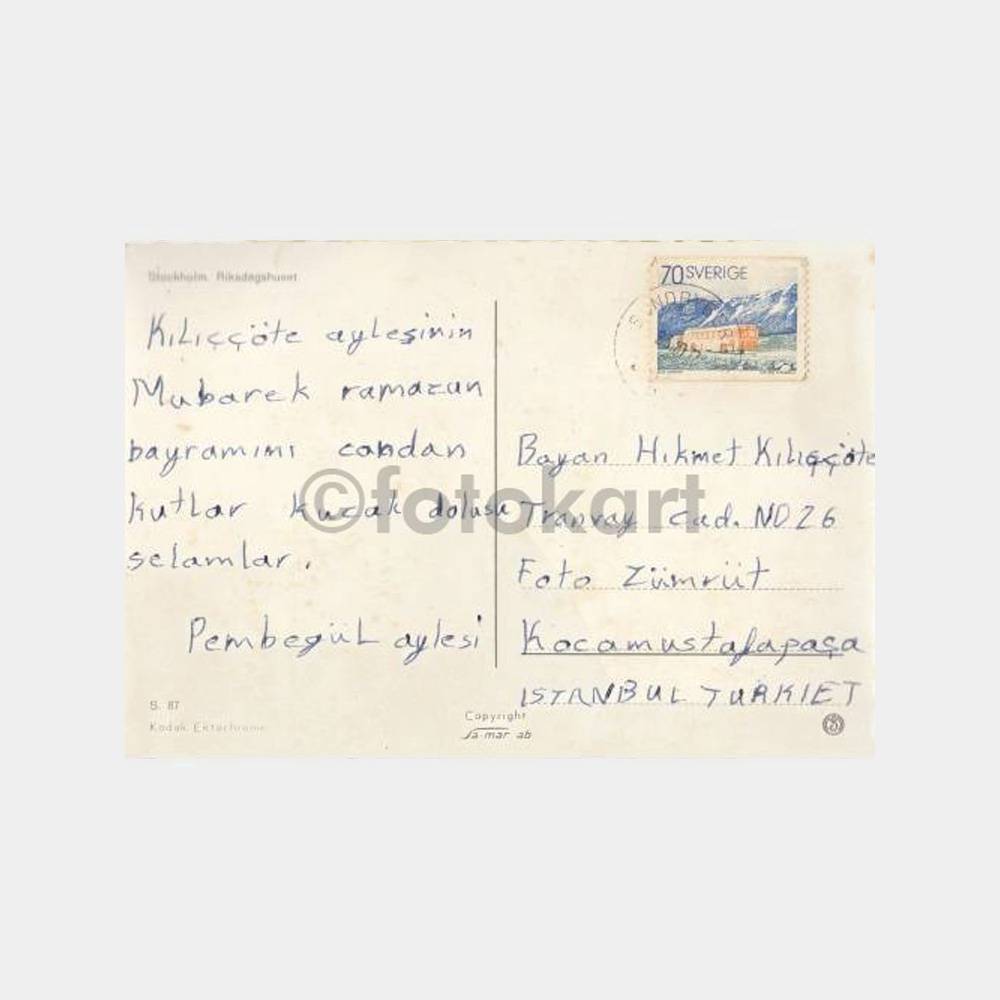 Stockholm. Riksdagshuset
70 SVERIGE
Kılıççöte ayleşinin
Mubarek ramazan
bayramını candan
kutlar kucak dolusu
selamlar.
Pembegül aylesi
Bayan Hikmet Kılıççöte
Tranvay Cad. NO 26
Foto Zümrüt
Kocamustafapaşa
ISTANBUL TURKIET
S. 87
Kodak Ektachrome
Copyright
Sa-mar ab
©fotokart